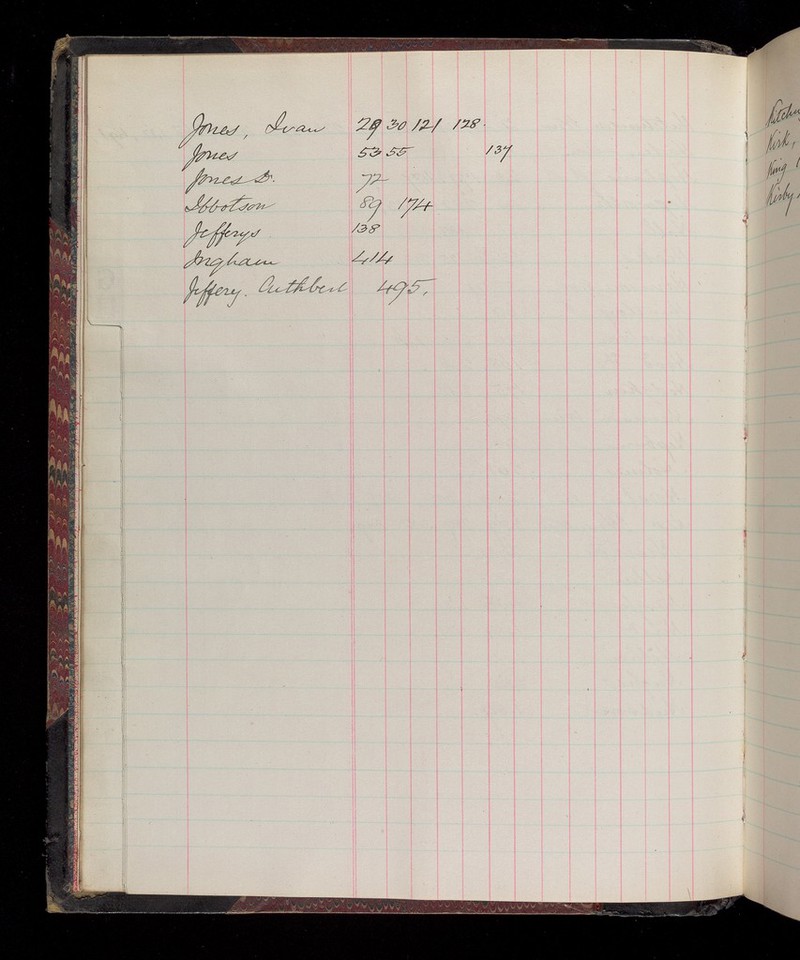 Jones, Ivan 29 30 121 128.
Jones 53 55 137
Jones D. 72
Ibbotson 89 174
Jefferys 138
Ingham 414
Jeffery. Cuthbert 495.
Kirk,
King
Kirby